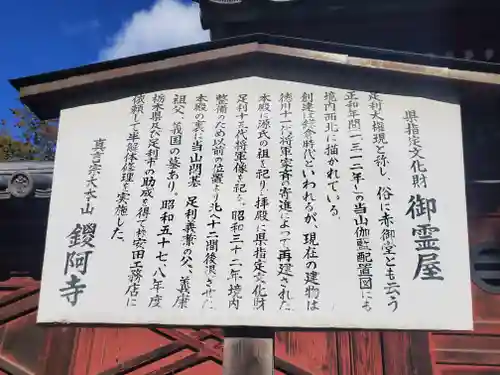 県指定文化財 御霊屋
足利大権現と称し、俗に赤御堂とも云う
正和年間（一三一二年）の当山伽藍配置図にも
境内西北に描かれている。
創建は鎌倉時代といわれるが、現在の建物は
徳川十一代将軍家斉の寄進によって再建された
本殿に源氏の祖を祀り拝殿に県指定文化財
足利十五代将軍像を祀る。昭和三十二年境内
整備のため以前の位置より北へ十二間後退させた
本殿の裏に当山開基 足利義兼の父、義康
祖父、義国の墓あり。昭和五十七、八年度
栃木県及び足利市の助成を得て 安田工務店に
依頼して半解体修理を実施した。
真言宗大本山 鑁阿寺